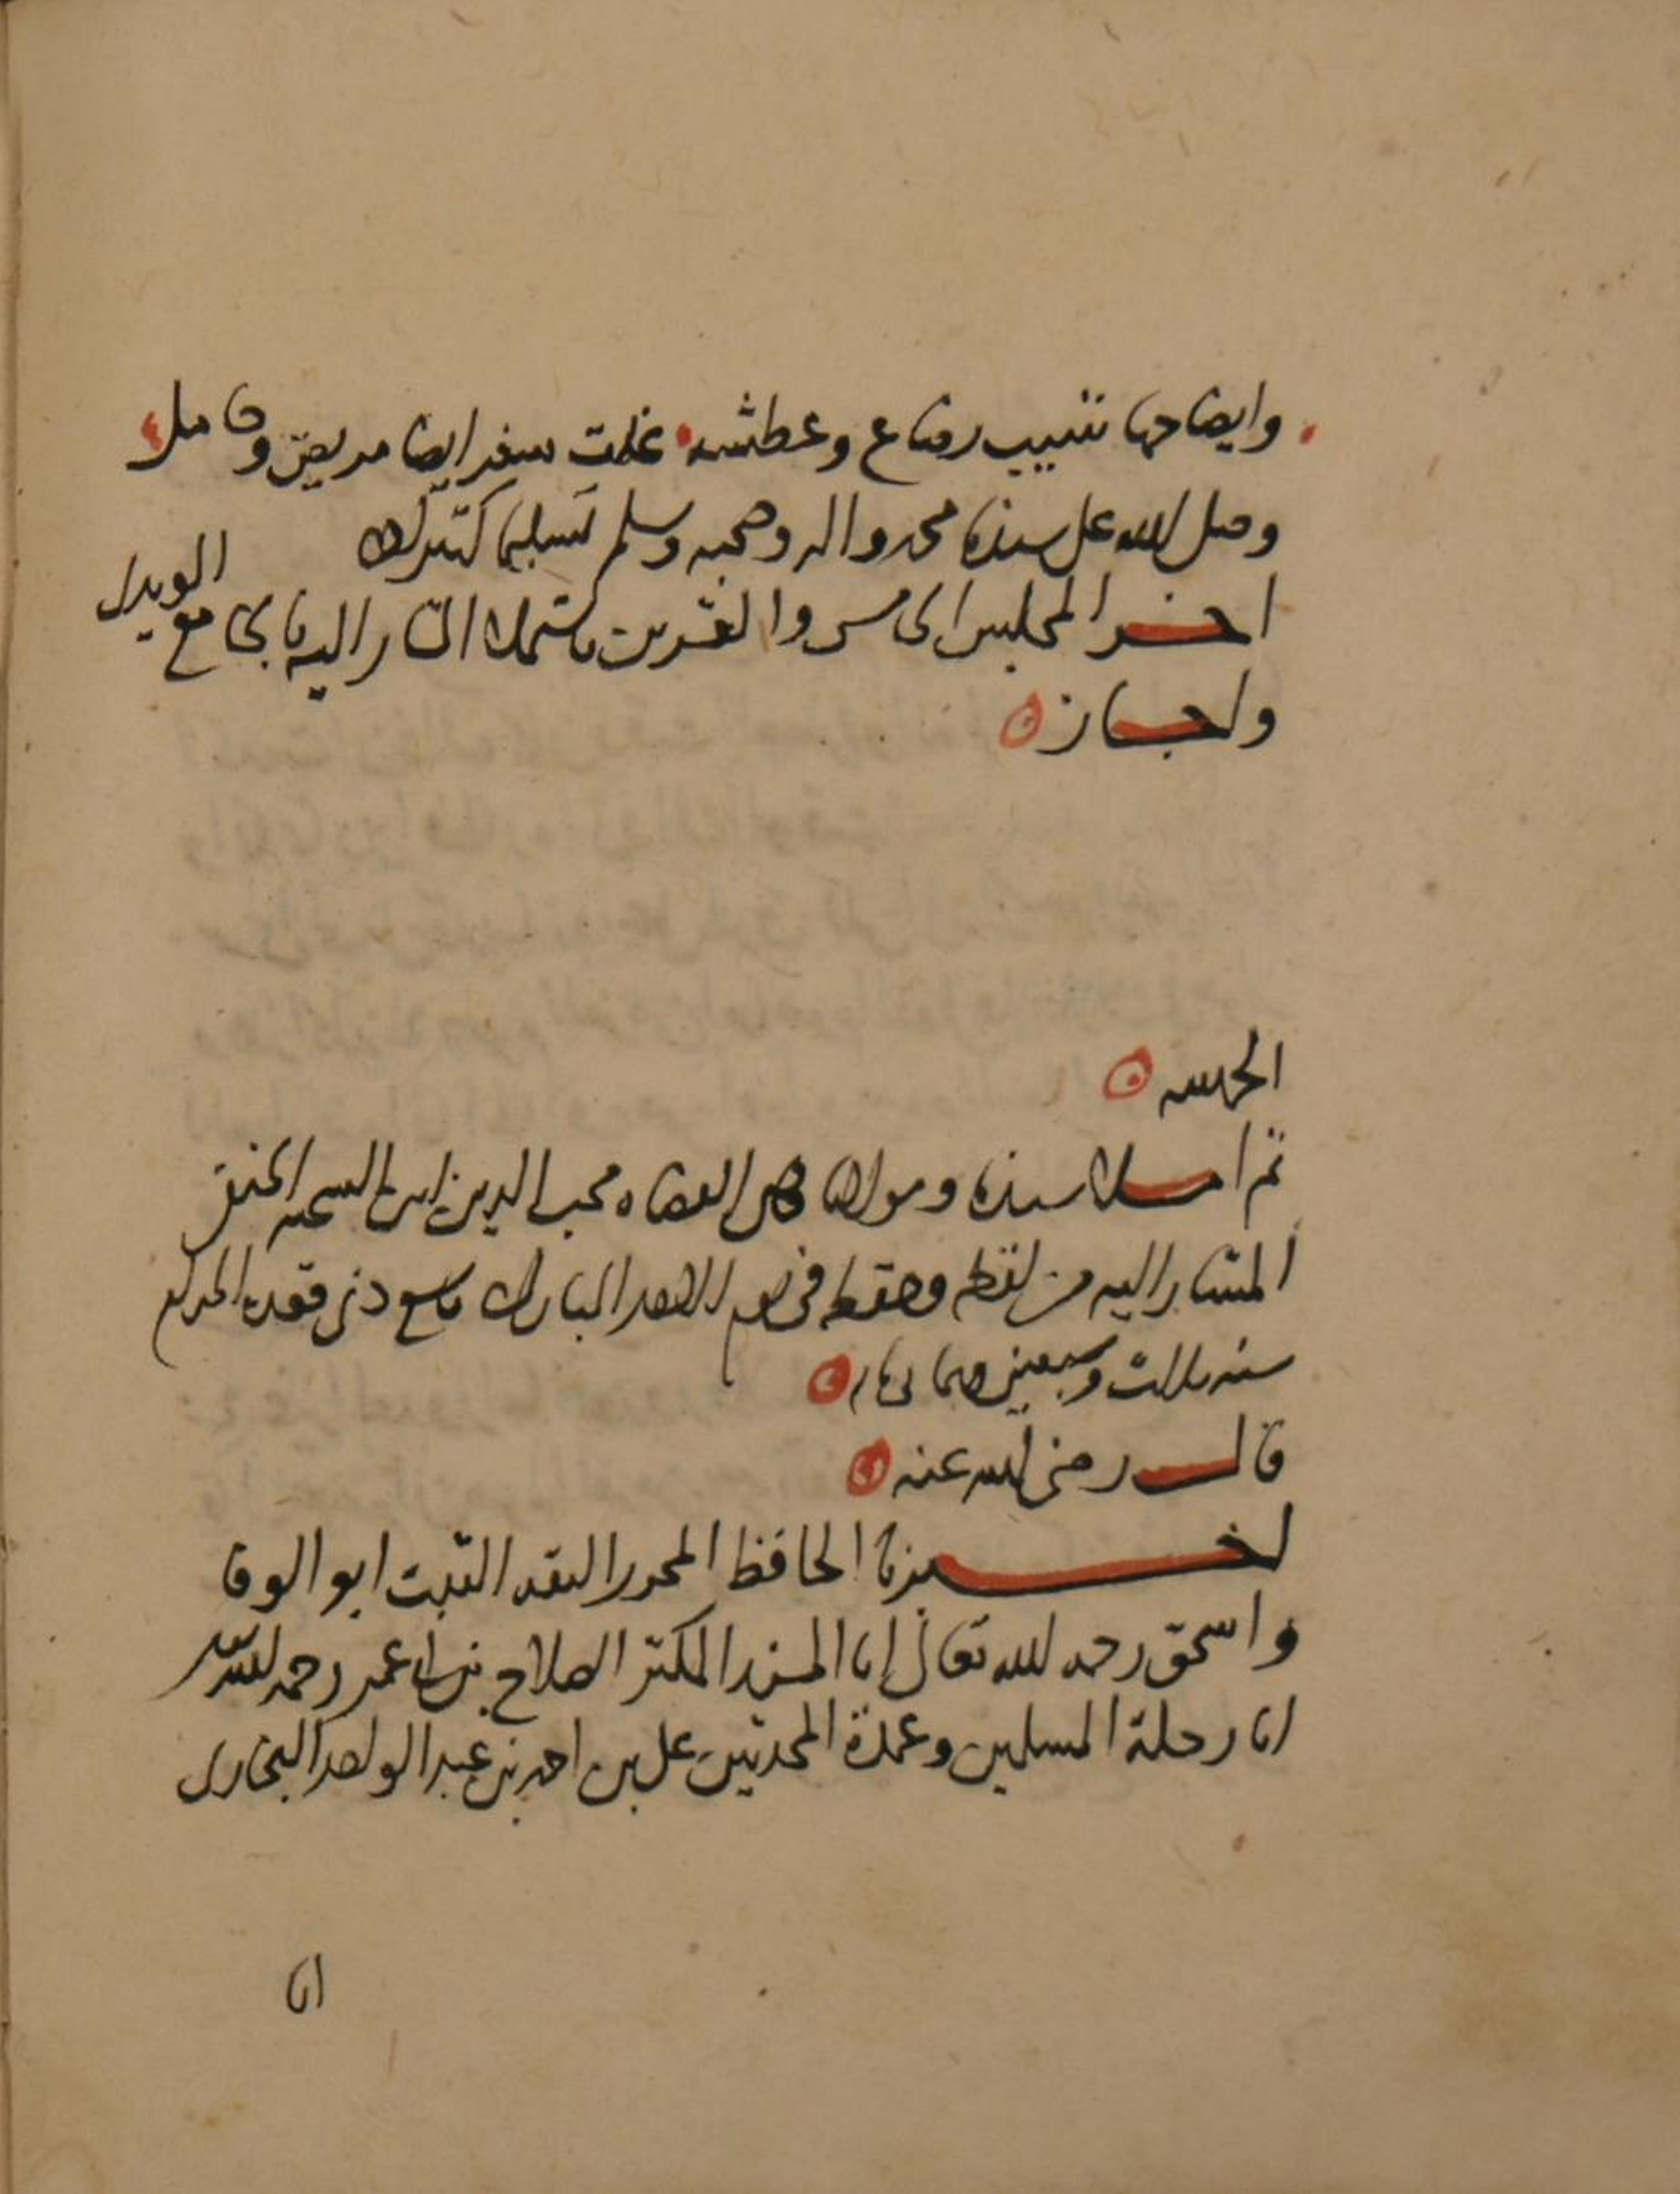 وايضا حما شيب رضاع وعطشه غلت سفر ايضا مريض وحامل
وصلى الله على سيدنا محمد واله وصحبه وسلم تسليما كثيرا
اخر المجلس الخامس والعشرين باستملا المشار اليه بالجامع المويدي
واجاز
الحمد لله
ثم املا سيدنا ومولانا قاضي القضاه محب الدين ابن الشحنه الحنفي
المشار اليه من لفظه وحفظه في يوم الاحد المبارك تاسع ذي قعده الحرام
سنه ثلاث وسبعين وثماني مايه
قال رضي الله عنه
اخبرنا الحافظ المحرر الثقه الثبت ابو الوفا
واسحق رحمه الله تعالى انا المسند المكثر الصلاح بن ابي عمر رحمه الله تعالى
انا رحلة المسلمين وعمدة المحدثين علي بن احمد بن عبد الواحد البخاري
انا